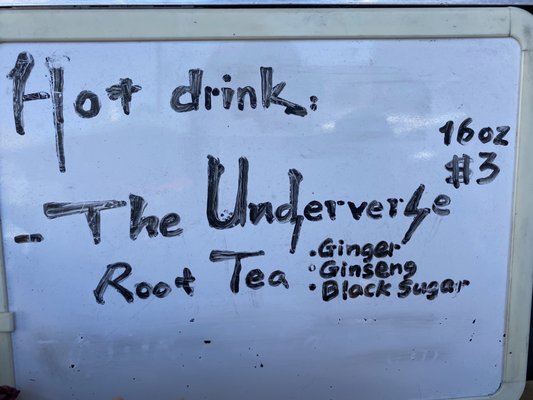 Hot drink:
16oz
#3
- The Underverse
Root Tea
• Ginger
• Ginseng
• Black Sugar